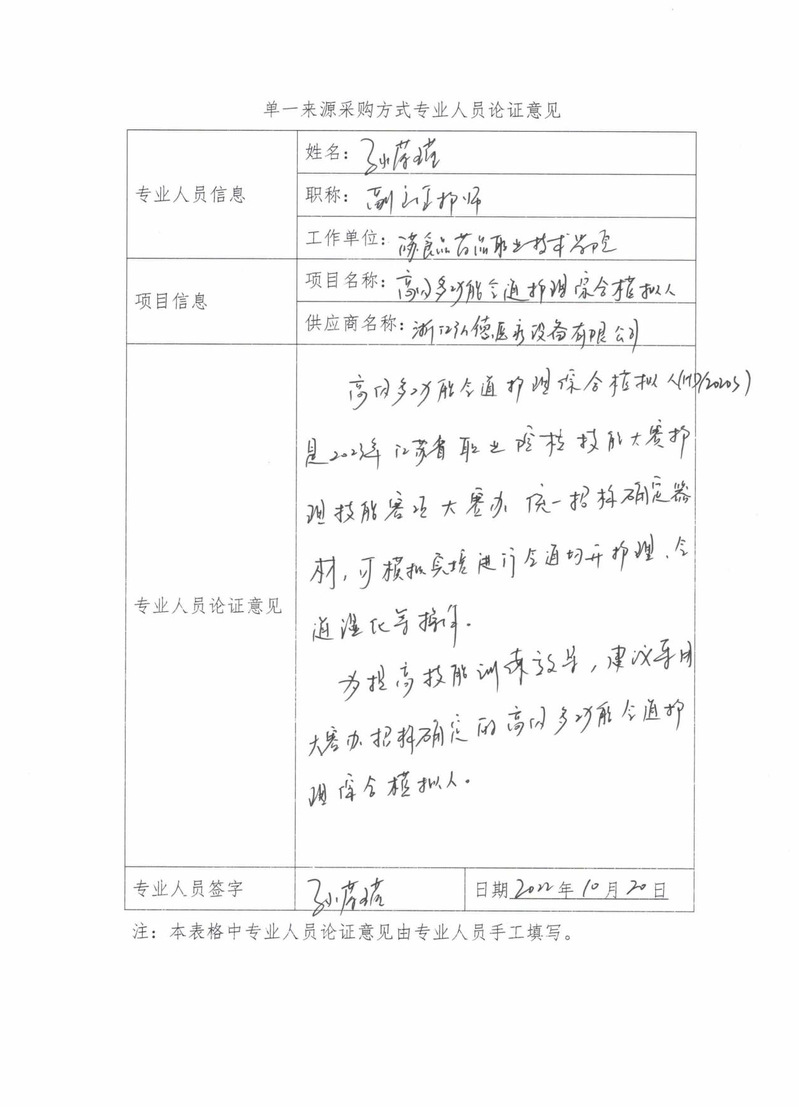 单一来源采购方式专业人员论证意见
专业人员信息
姓名：孙
职称：副主任护师
工作单位：江苏食品药品职业技术学院
项目信息
项目名称：高级多功能气道护理综合模拟人
供应商名称：浙江弘德医疗设备有限公司
专业人员论证意见
高级多功能气道护理综合模拟人(HD/2020S)
是2023年江苏省职业院校技能大赛护
理技能赛项大赛办统一招标确定器
材，可模拟实境进行气道切开护理、气
道湿化等操作。
为提高技能训练效果，建议采用
大赛办招标确定的高级多功能气道护
理综合模拟人。
专业人员签字
孙
日期 2022年10月20日
注：本表格中专业人员论证意见由专业人员手工填写。